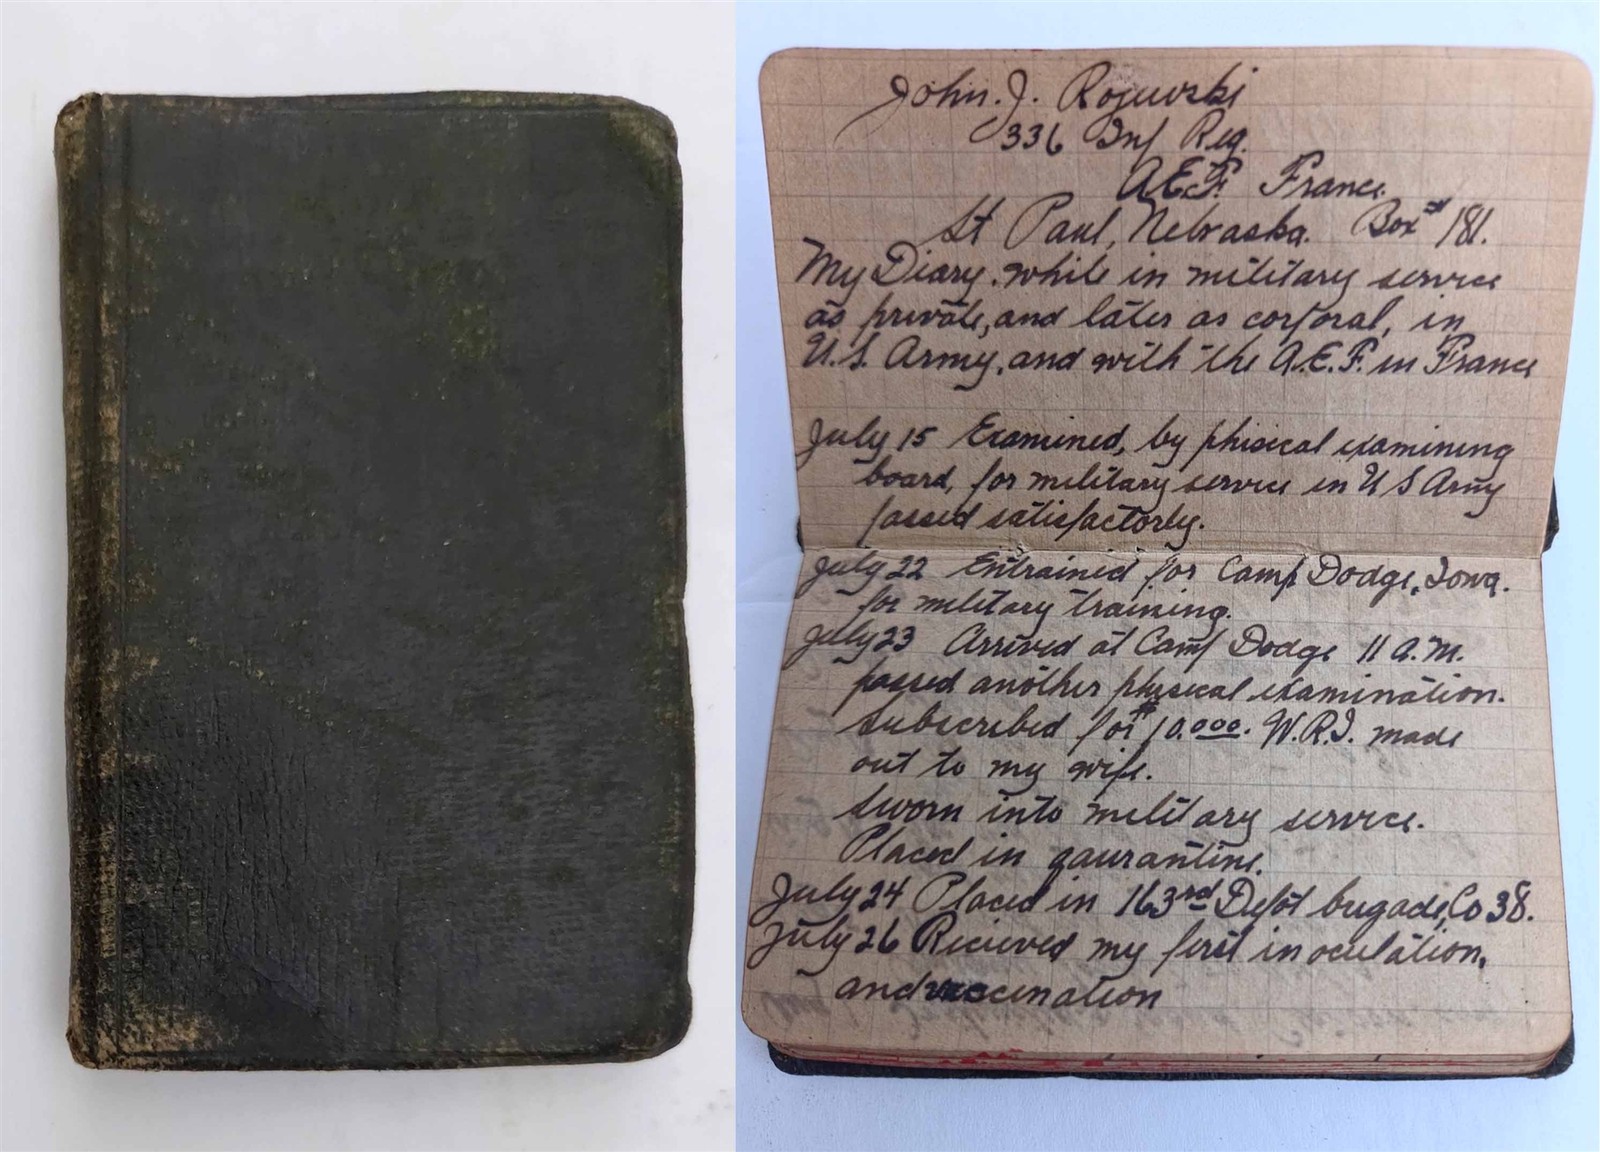 John. J. Rojewski
336 Inf Reg.
A.E.F. France.
St Paul, Nebraska. Box # 181.
My Diary. while in military service
as private, and later as corporal, in
U.S. Army, and with the A.E.F. in France
July 15 Examined, by phisical examining
board, for military service in U S Army
passed satisfactorly.
July 22 Entrained for Camp Dodge, Iowa.
for military training.
July 23 Arrived at Camp Dodge 11 A.M.
passed another physical examination.
subscribed for $10.000. W.R.I. made
out to my wife.
sworn into military service.
Placed in qaurantine.
July 24 Placed in 163rd Depot brigade, Co 38.
July 26 Recieved my first inoculation,
and vaccination